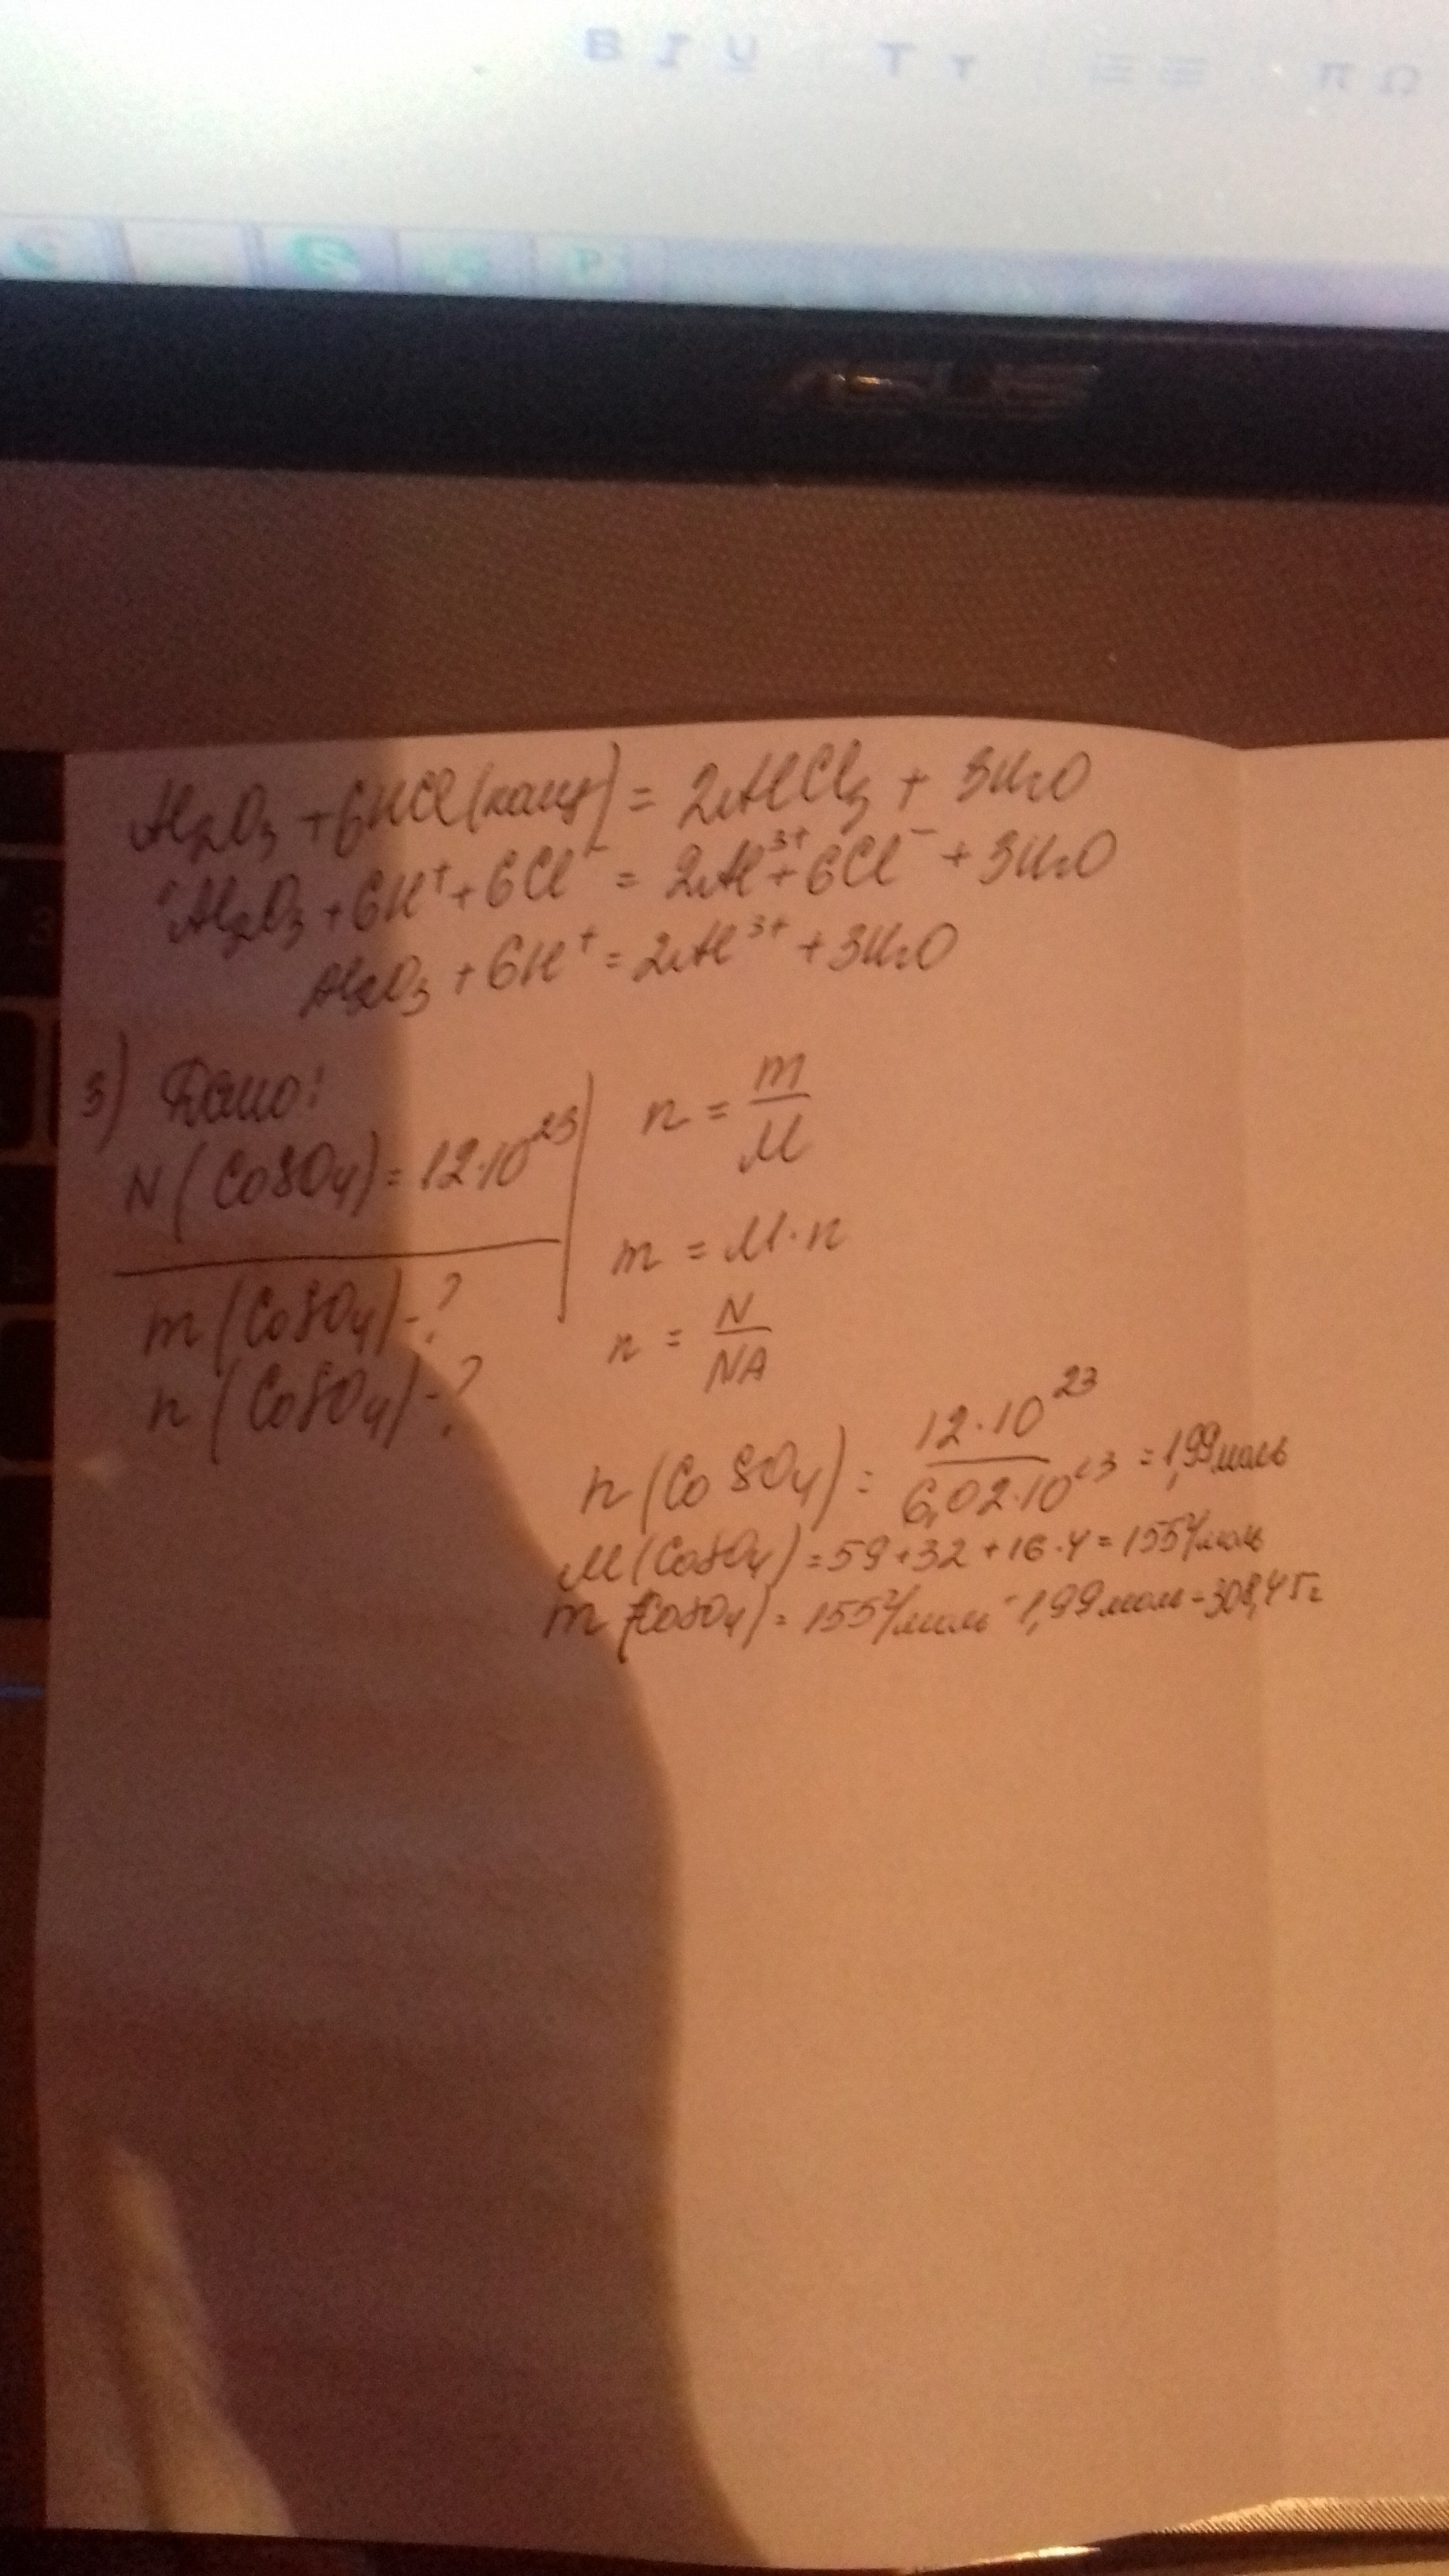 B I U T T π Ω
ASUS
Al₂O₃ + 6HCl (конц) = 2AlCl₃ + 3H₂O
Al₂O₃ + 6H⁺ + 6Cl⁻ = 2Al³⁺ + 6Cl⁻ + 3H₂O
Al₂O₃ + 6H⁺ = 2Al³⁺ + 3H₂O
3) Дано:
N (CoSO₄) = 12·10²³
m (CoSO₄) - ?
n (CoSO₄) - ?
n = m/M
m = M·n
n = N/NA
n (CoSO₄) = 12·10²³/6,02·10²³ = 1,99 моль
M (CoSO₄) = 59 + 32 + 16·4 = 155 г/моль
m (CoSO₄) = 155 г/моль · 1,99 моль = 308,45 г